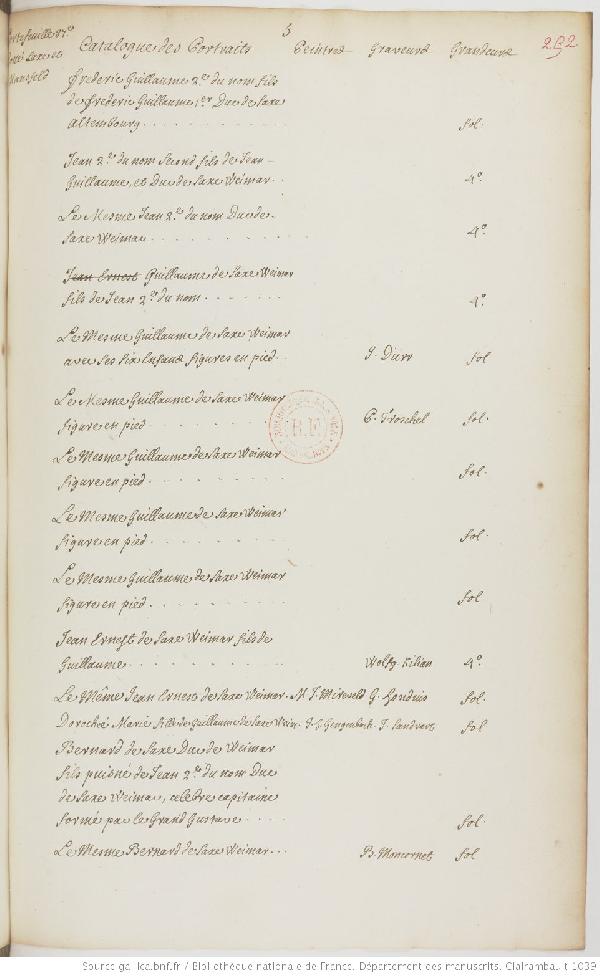 5
portefeuille 17.e
Saxe et
Mansfeld
Catalogue des Portraits Peintres Graveurs Grandeurs 292
frederic Guillaume 2.e du nom fils
de frederic Guillaume 1.er Duc de Saxe
Altembourg . . . . . . . . . . fol.
Jean 2.e du nom Second fils de Jean
Guillaume, et Duc de Saxe Weimar . . 4.o
Le Mesme Jean 2.e du nom Duc de
Saxe Weimar . . . . . . . . . . 4.o
Jean Ernest Guillaume de Saxe Weimar
fils de Jean 2.e du nom . . . . . . . 4.o
Le Mesme Guillaume de Saxe Weimar
avec Ses Six Enfans figures en pied . . J. Durr fol
Le Mesme Guillaume de Saxe Weimar
figure en pied . . . . . . . . . C. Troschel fol.
Le Mesme Guillaume de Saxe Weimar
figure en pied . . . . . . . . . fol.
Le Mesme Guillaume de Saxe Weimar
figure en pied . . . . . . . . . fol.
Le Mesme Guillaume de Saxe Weimar
figure en pied . . . . . . . . . fol
Jean Ernest de Saxe Weimar fils de
Guillaume . . . . . . . . . . Wolfg Kilian 4.o
Le Même Jean Ernest de Saxe Weimar. M J. Mireveld G. hondius fol.
Dorothée Marie fille de Guillaume de Saxe Weim. J. G Gengenbach. J. Sandrart fol
Bernard de Saxe Duc de Weimar
fils puisné de Jean 2.e du nom Duc
de Saxe Weimar, célébre capitaine
formé par le Grand Gustave . . . . fol.
Le Mesme Bernard de Saxe Weimar . . . B. Moncornet fol
R.F.
Source gallica.bnf.fr / Bibliothèque nationale de France. Département des manuscrits. Clairambault 1039